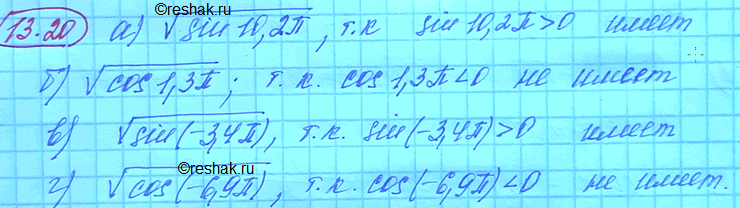 13.20 а) √sin 10,2π, т.к sin 10,2π>0 имеет
©reshak.ru
б) √cos 1,3π; т.к. cos 1,3π<0 не имеет
в) √sin(-3,4π), т.к. sin(-3,4π)>0 имеет
©reshak.ru
г) √cos(-6,9π), т.к. cos(-6,9π)<0 не имеет.